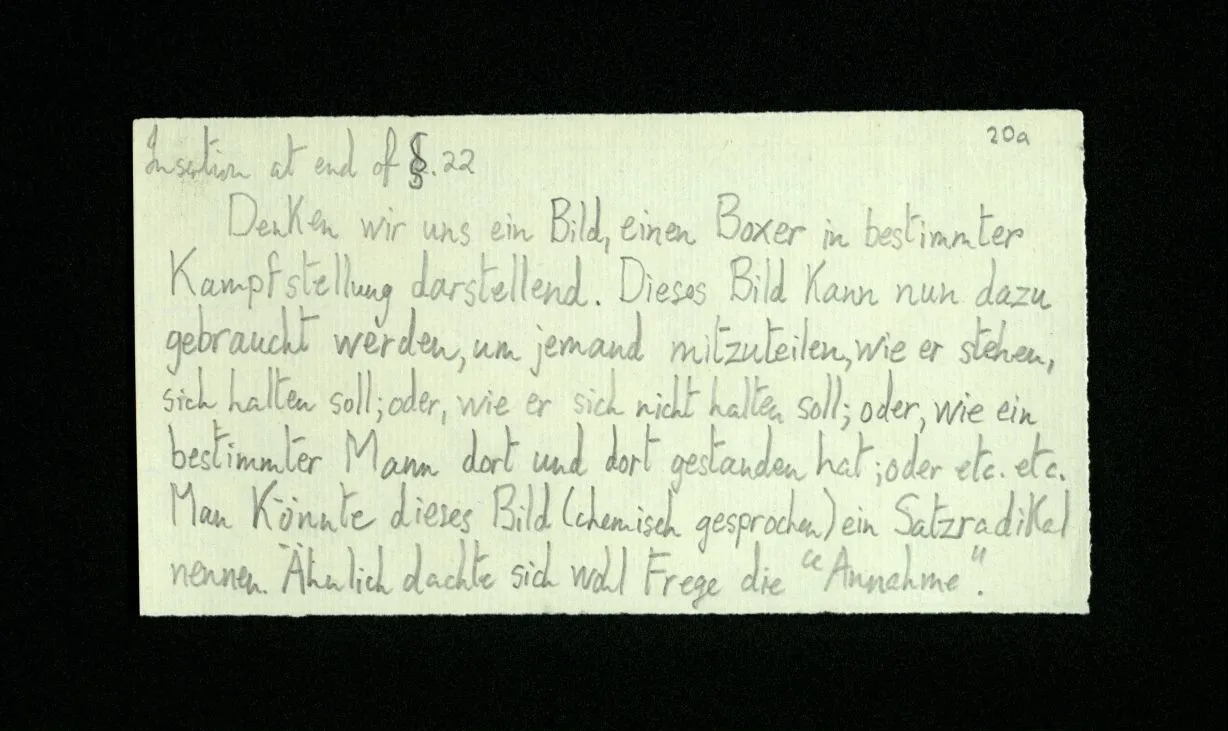 20a
Insertion at end of §.22
Denken wir uns ein Bild, einen Boxer in bestimmter
Kampfstellung darstellend. Dieses Bild kann nun dazu
gebraucht werden, um jemand mitzuteilen, wie er stehen,
sich halten soll; oder, wie er sich nicht halten soll; oder, wie ein
bestimmter Mann dort und dort gestanden hat; oder etc. etc.
Man könnte dieses Bild (chemisch gesprochen) ein Satzradikal
nennen. Ähnlich dachte sich wohl Frege die “Annahme”.